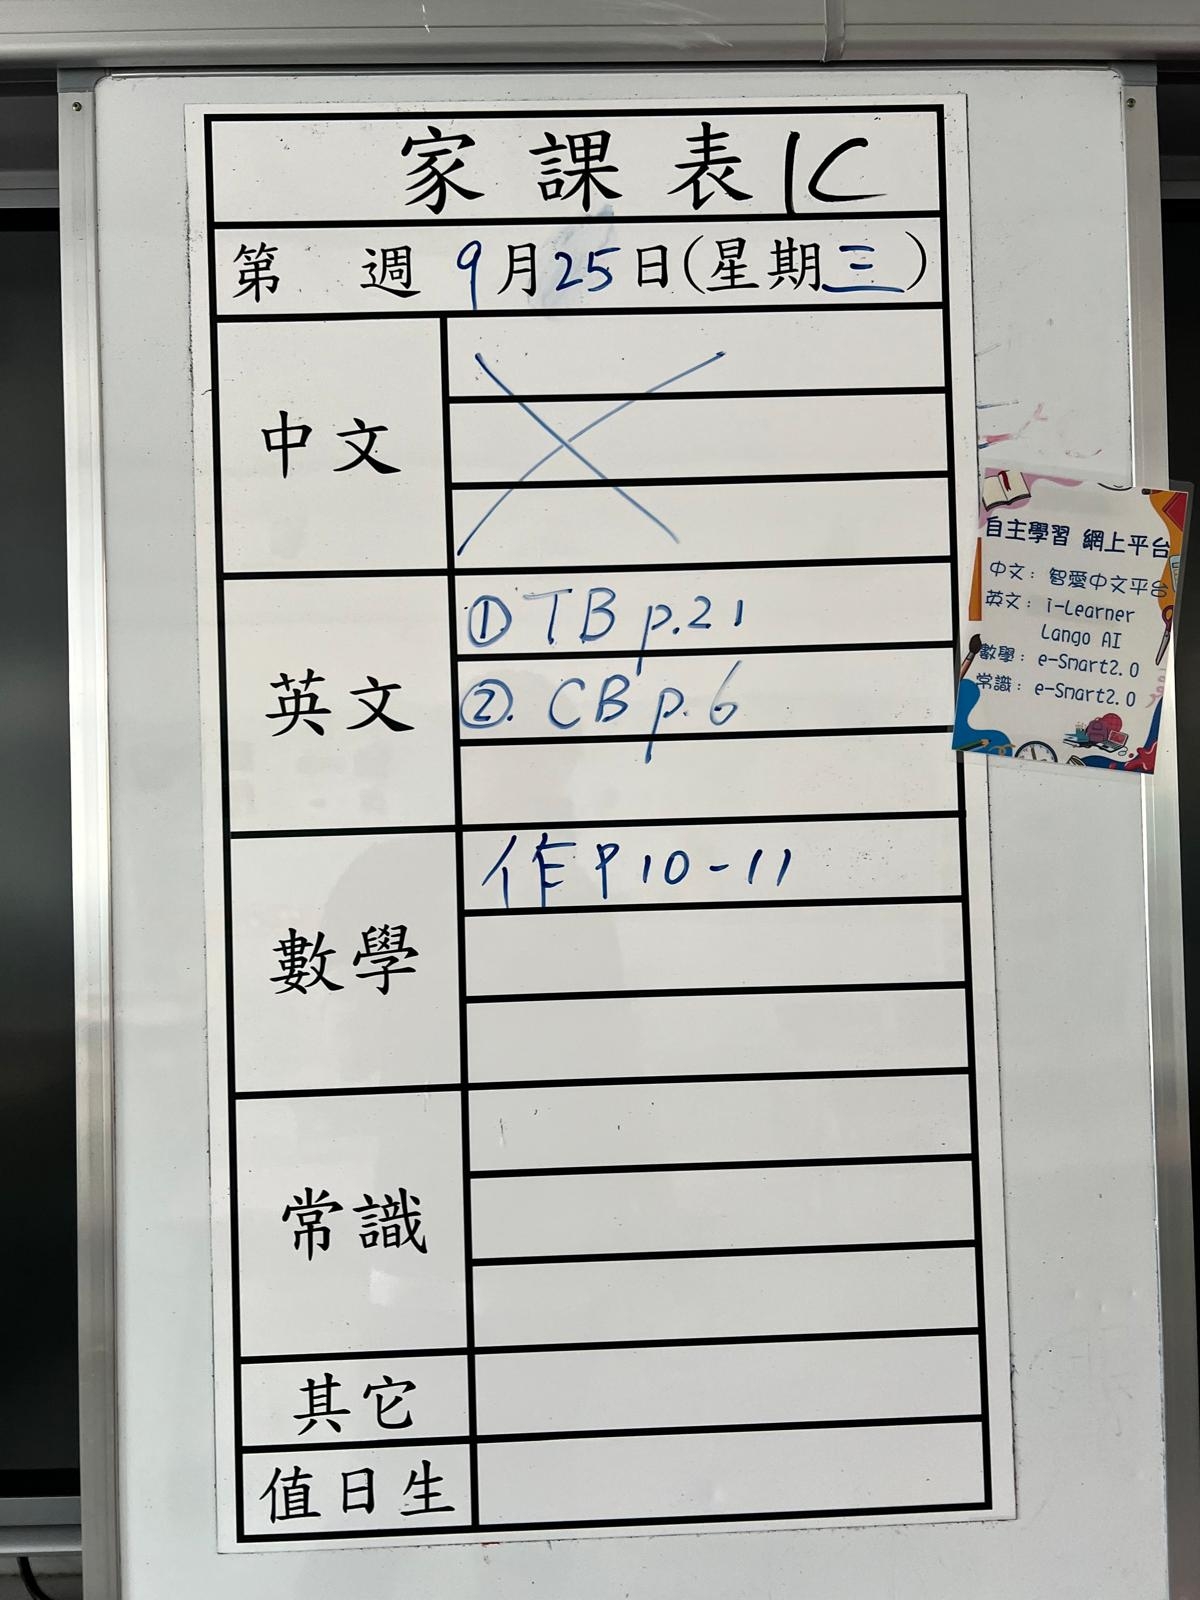 家課表 1C
第 週 9月25日(星期三)
中文
英文
① TB p.21
②. CB p.6
數學
作 P 10-11
常識
其它
值日生
自主學習 網上平台
中文: 智愛中文平台
英文: i-Learner
Lango AI
數學: e-Smart2.0
常識: e-Smart2.0